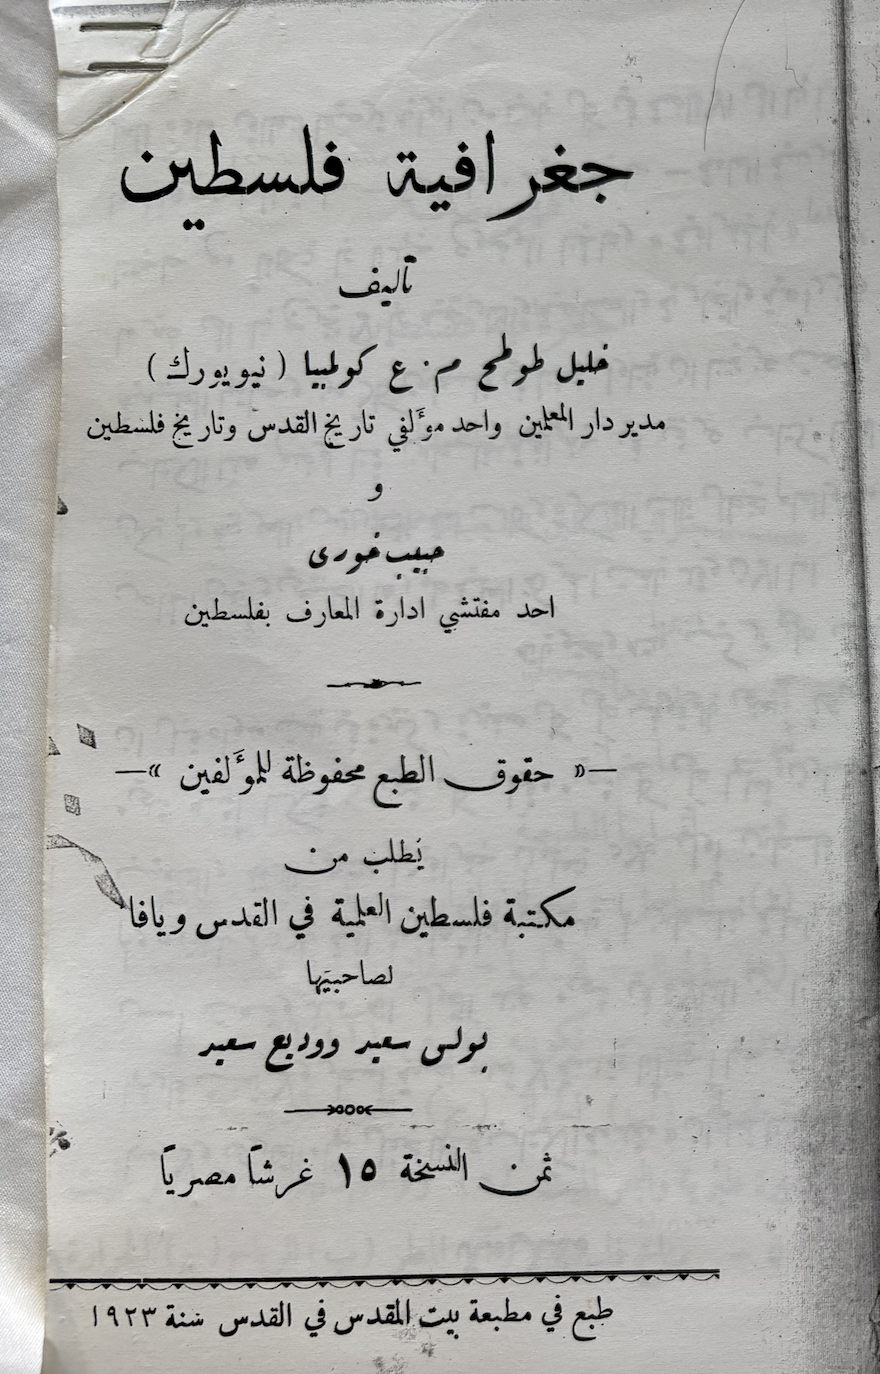 جغرافية فلسطين
تأليف
خليل طوطح م. ع كولمبيا (نيويورك)
مدير دار المعلمين واحد مؤَلفي تاريخ القدس وتاريخ فلسطين
و
حبيب خوري
احد مفتشي ادارة المعارف بفلسطين
—« حقوق الطبع محفوظة للمؤَلفين »—
يُطلب من
مكتبة فلسطين العلمية في القدس ويافا
لصاحبيَها
بولس سعيد ووديع سعيد
ثمن النسخة ١٥ غرشاً مصرياً
طبع في مطبعة بيت المقدس في القدس سنة ١٩٢٣